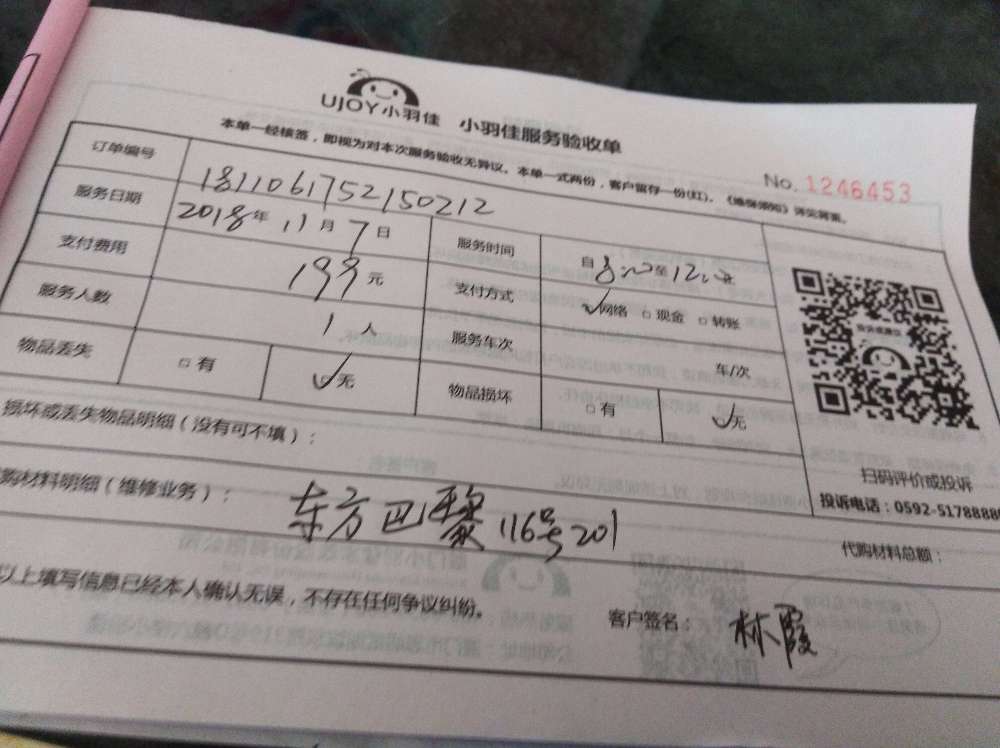 UJOY小羽佳 小羽佳服务验收单
本单一经核签，即视为对本次服务验收无异议。本单一式两份，客户留存一份(红)。
No. 1246453
订单编号 1811061752150212
服务日期 2018年11月7日 服务时间 自8:00至12:00
支付费用 199元 支付方式 ☑网络 □现金 □转账
服务人数 1人 服务车次 车/次
物品丢失 □有 ☑无 物品损坏 □有 ☑无
扫码评价或投诉
投诉电话：0592-5178888
损坏或丢失物品明细（没有可不填）：
购材料明细（维修业务）： 东方巴黎116号201
代购材料总额：
以上填写信息已经本人确认无误，不存在任何争议纠纷。
客户签名： 林霞